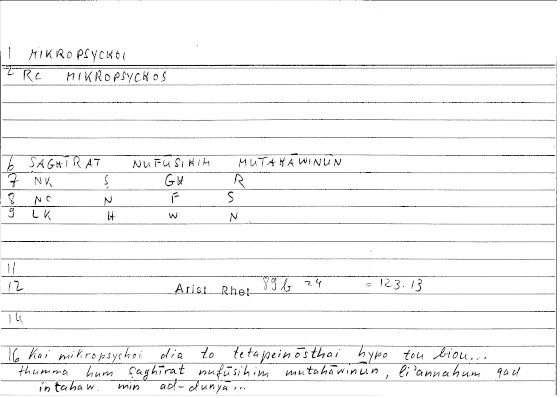 1 MIKROPSYCHOI
2 RC MIKROPSYCHOS
6 SAGHĪRAT NUFŪSIHIM MUTAHĀWINŪN
7 NK Ṣ GH R
8 NC N F S
9 LK H W N
11
12 Arist Rhet 89b 24 = 123.13
14
16 Kai mikropsychoi dia to tetapeinōsthai hypo tou biou...
thumma hum ṣaghīrat nufūsihim mutahāwinūn, li'annahum qad
intahaw. min ad-dunyā...